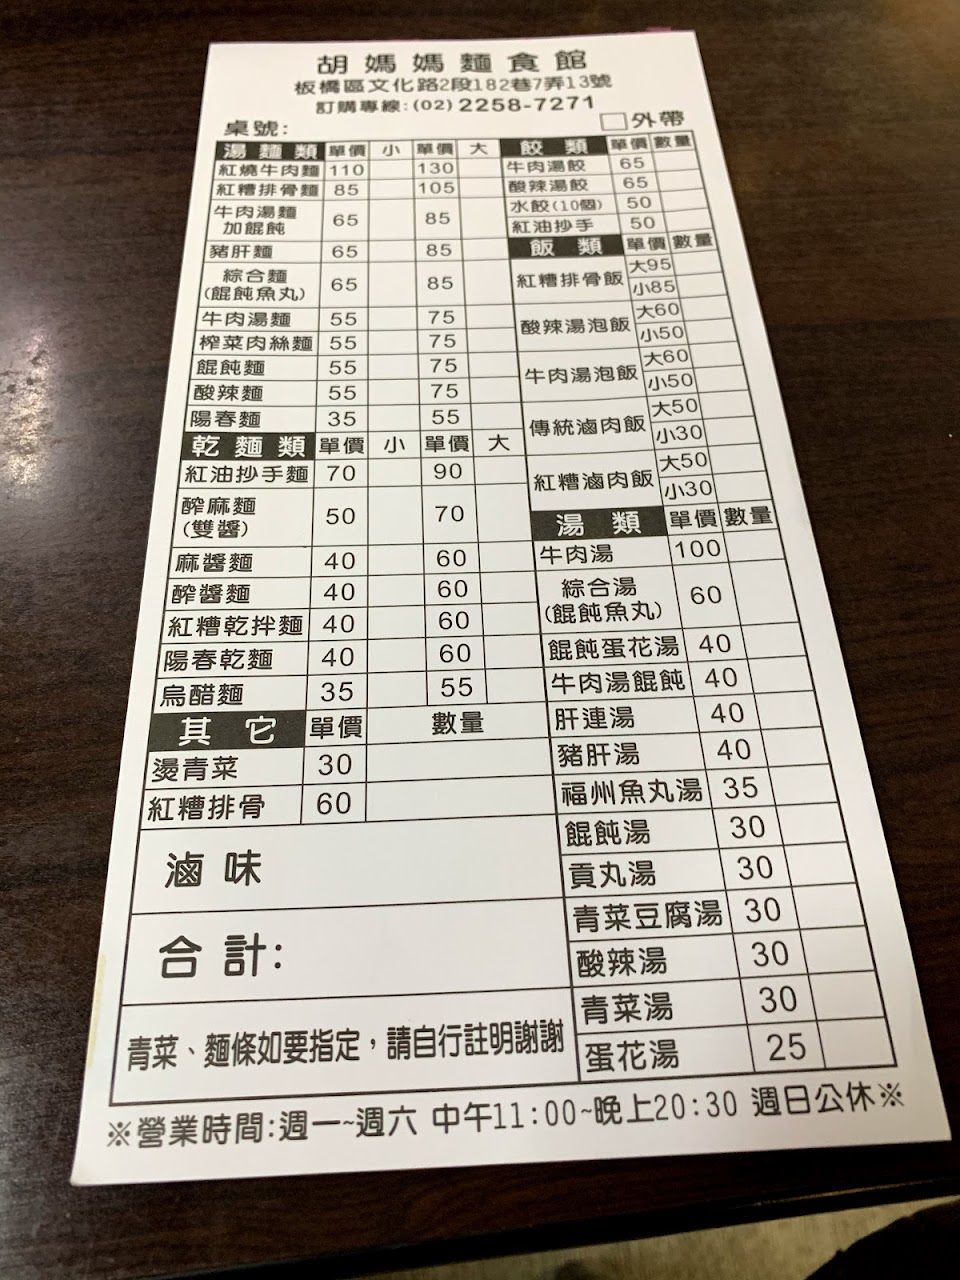 胡媽媽麵食館
板橋區文化路2段182巷7弄13號
訂購專線:(02) 2258-7271
桌號: □外帶
湯麵類 單價 小 單價 大
紅燒牛肉麵 110 130
紅糟排骨麵 85 105
牛肉湯麵
加餛飩 65 85
豬肝麵 65 85
綜合麵
(餛飩魚丸) 65 85
牛肉湯麵 55 75
榨菜肉絲麵 55 75
餛飩麵 55 75
酸辣麵 55 75
陽春麵 35 55
乾麵類 單價 小 單價 大
紅油抄手麵 70 90
醡麻麵
(雙醬) 50 70
麻醬麵 40 60
醡醬麵 40 60
紅糟乾拌麵 40 60
陽春乾麵 40 60
烏醋麵 35 55
其它 單價 數量
燙青菜 30
紅糟排骨 60
滷味
合計:
青菜、麵條如要指定，請自行註明謝謝
餃類 單價 數量
牛肉湯餃 65
酸辣湯餃 65
水餃(10個) 50
紅油抄手 50
飯類 單價 數量
紅糟排骨飯 大95
小85
酸辣湯泡飯 大60
小50
牛肉湯泡飯 大60
小50
傳統滷肉飯 大50
小30
紅糟滷肉飯 大50
小30
湯類 單價 數量
牛肉湯 100
綜合湯
(餛飩魚丸) 60
餛飩蛋花湯 40
牛肉湯餛飩 40
肝連湯 40
豬肝湯 40
福州魚丸湯 35
餛飩湯 30
貢丸湯 30
青菜豆腐湯 30
酸辣湯 30
青菜湯 30
蛋花湯 25
※營業時間:週一~週六 中午11:00~晚上20:30 週日公休※